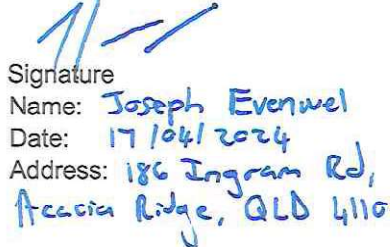 Signature
Name: Joseph Evenwel
Date: 17/04/2024
Address: 186 Ingram Rd,
Acacia Ridge, QLD 4110